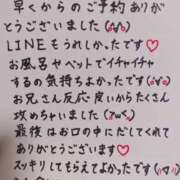 早くからのご予約ありが
とうございました(ˆoˆ)
LINEもうれしかったです♡
お風呂やベットでイチャイチャ
するの気持ちよかったです(ˆvˆ)
お兄さん反応良いからたくさん
攻めちゃいました(˘ω˘)
最後はお口の中にだしてくれて
ありがとうございます♡
スッキリしてもらえてよかった